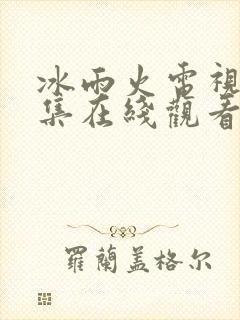 冰雨火電視
集在綫觀看
羅蘭蓋格尔